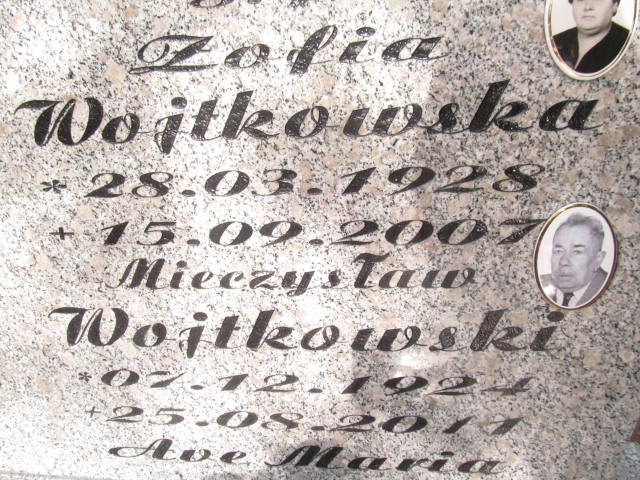 Zofia
Wojtkowska
* 28.03.1928
+ 15.09.2007
Mieczysław
Wojtkowski
* 07.12.1924
+ 25.08.2011
Ave Maria